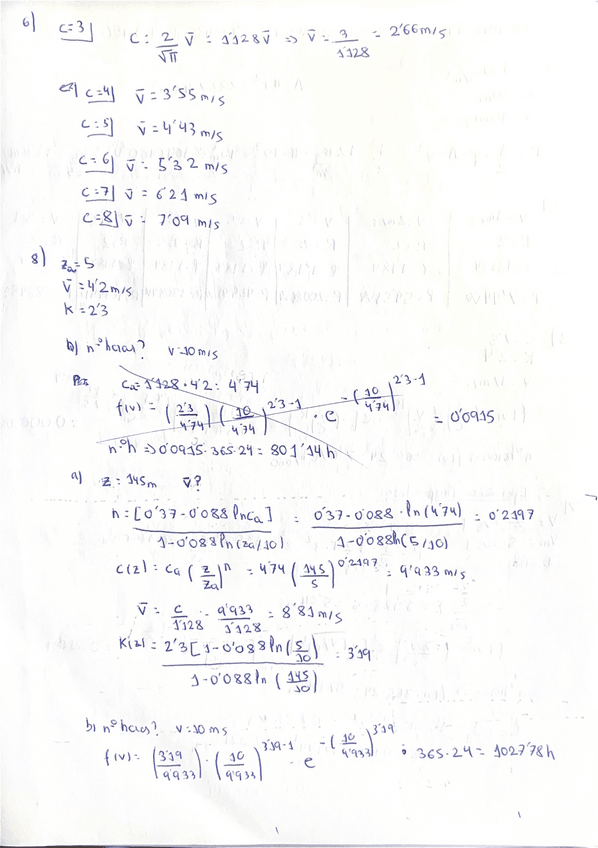 6) C=3 C = 2/√π v̄ = 1'128 v̄ ⇒ v̄ = 3/1'128 = 2'66 m/s
C=4 v̄ = 3'55 m/s
C=5 v̄ = 4'43 m/s
C=6 v̄ = 5'32 m/s
C=7 v̄ = 6'21 m/s
C=8 v̄ = 7'09 m/s
8) Za = 5
v̄ = 4'2 m/s
K = 2'3
b) nº horas? v=10 m/s
Ca = 1'128 · 4'2 = 4'74
f(v) = (2'3/4'74) (10/4'74)^2'3-1 · e^-(10/4'74)^2'3-1 = 0'0915
nºh ⇒ 0'0915 · 365 · 24 = 801'14 h
a) z = 145m v̄?
n = [0'37 - 0'088 ln Ca] / 1 - 0'088 ln (Za/10) = 0'37 - 0'088 · ln (4'74) / 1 - 0'088 ln (5/10) = 0'2197
C(z) = Ca (z/Za)^n = 4'74 (145/5)^0'2197 = 9'933 m/s.
v̄ = C/1'128 = 9'933/1'128 = 8'81 m/s
K(z) = 2'3 [1 - 0'088 ln (5/10)] / 1 - 0'088 ln (145/10) = 3'19
b) nº horas? v=10 ms
f(v) = (3'19/9'933) · (10/9'933)^3'19-1 · e^-(10/9'933)^3'19 · 365 · 24 = 1027'78 h